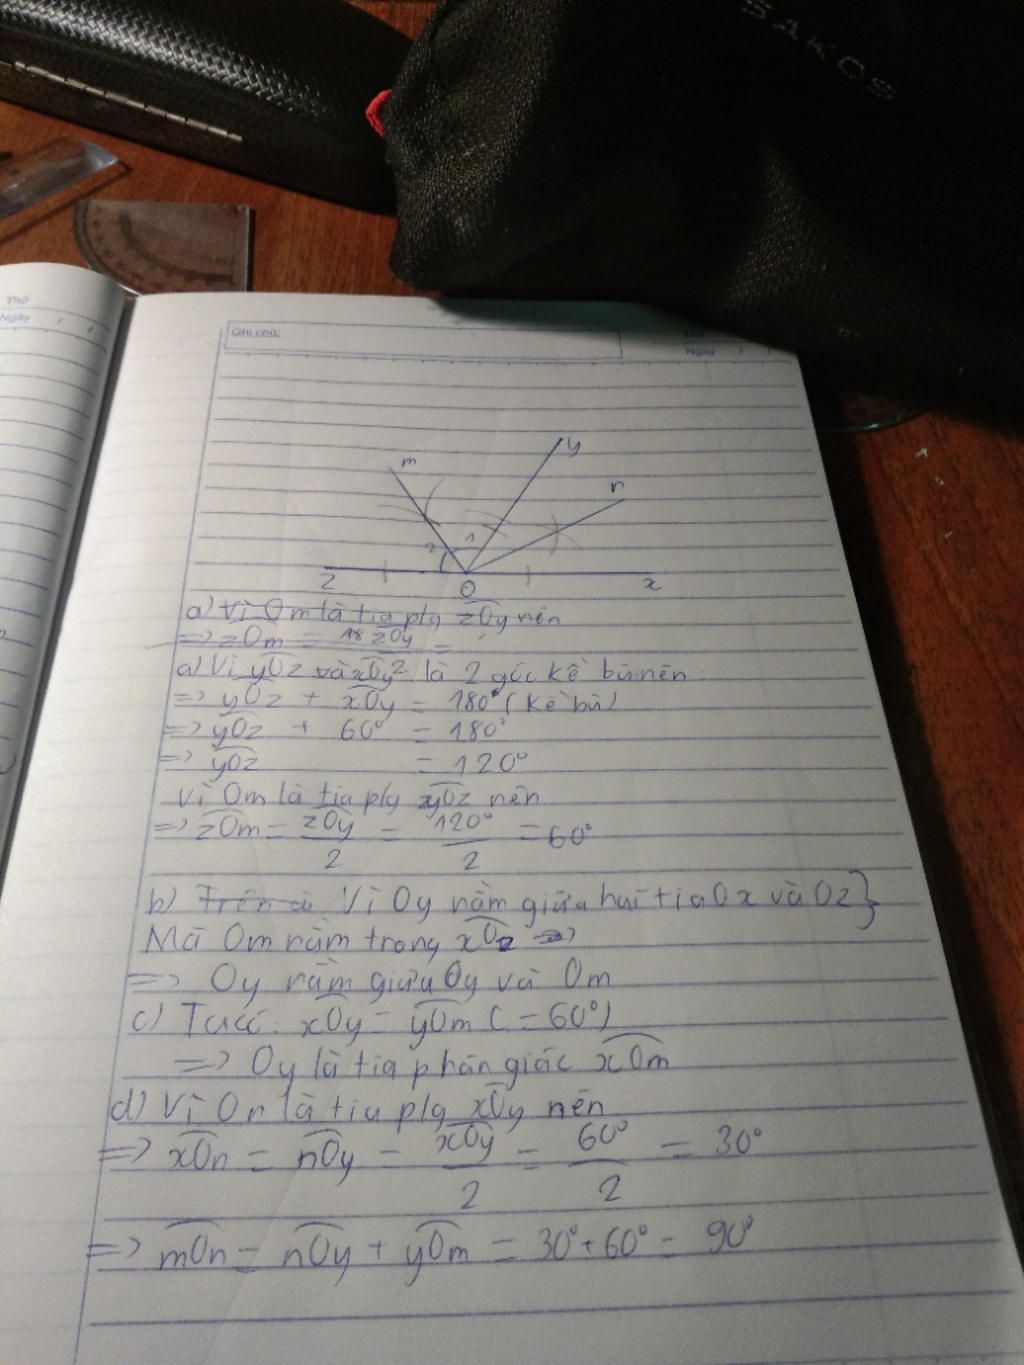 SAKOS
Thứ
Ngày / /
Ghi chú:
Ngày / /
m
y
n
2
1
z
O
x
a) Vì Om là tia plg zOy nên
=> zOm = 18 zOy =
a) Vì yOz và xOy 2 là 2 góc kề bù nên:
=> yOz + xOy = 180° (kề bù)
=> yOz + 60° = 180°
=> yOz = 120°
Vì Om là tia plg yOz nên
=> zOm = zOy/2 = 120°/2 = 60°
b) Trên Vì Oy nằm giữa hai tia Ox và Oz }
Mà Om nằm trong xOz =>
=> Oy nằm giữa Oy và Om
c) Ta có: xOy = yOm (= 60°)
=> Oy là tia phân giác xOm
d) Vì On là tia plg xOy nên
=> xOn = nOy = xOy/2 = 60°/2 = 30°
=> mOn = nOy + yOm = 30° + 60° = 90°